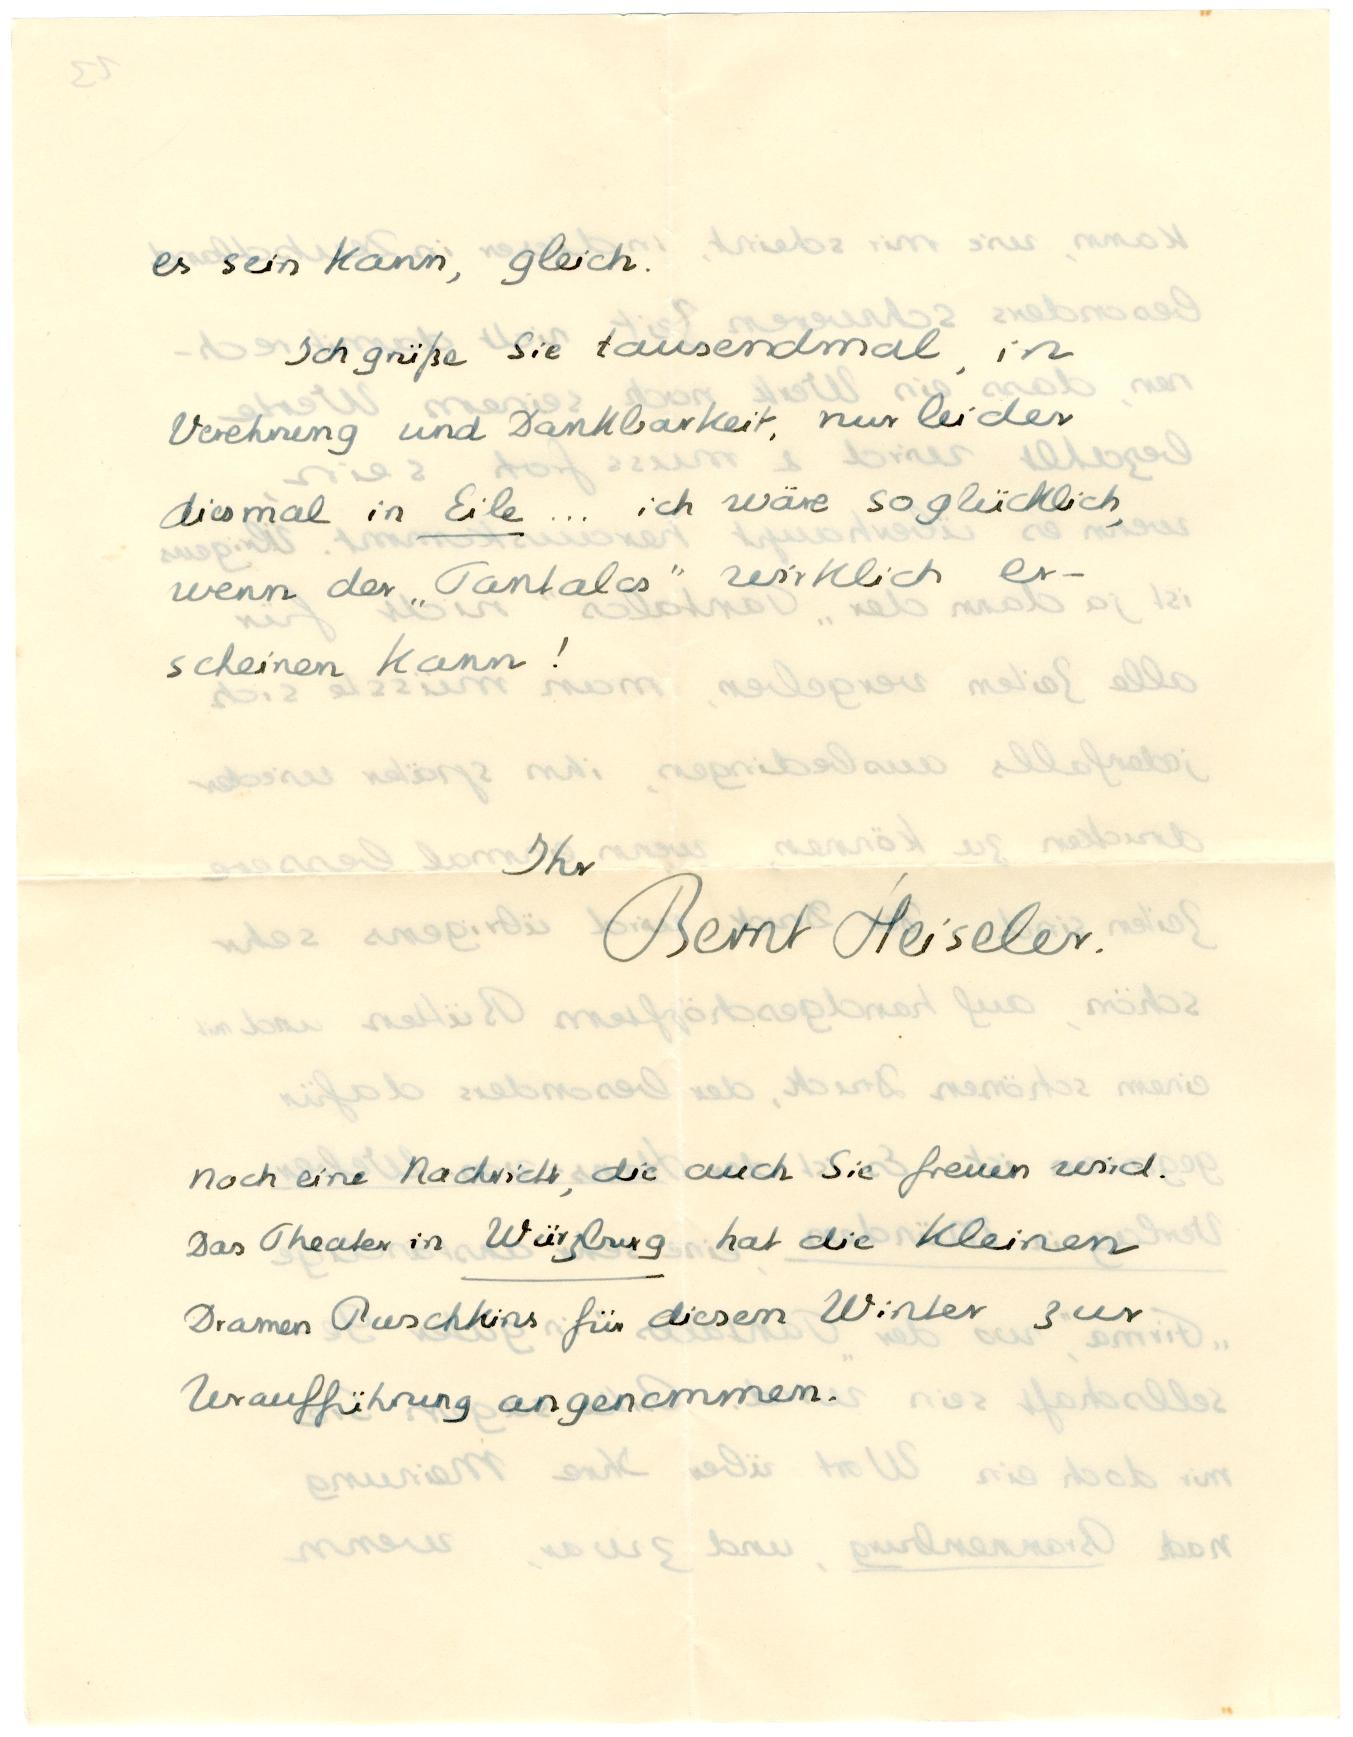 es sein kann, gleich.
Ich grüße Sie tausendmal, in
Verehrung und Dankbarkeit, nur leider
diesmal in Eile ... ich wäre so glücklich,
wenn der „Tantalos" wirklich er-
scheinen kann!
Ihr
Bernt Heiseler.
Noch eine Nachricht, die auch Sie freuen wird.
Das Theater in Würzburg hat die Kleinen
Dramen Puschkins für diesen Winter zur
Uraufführung angenommen.